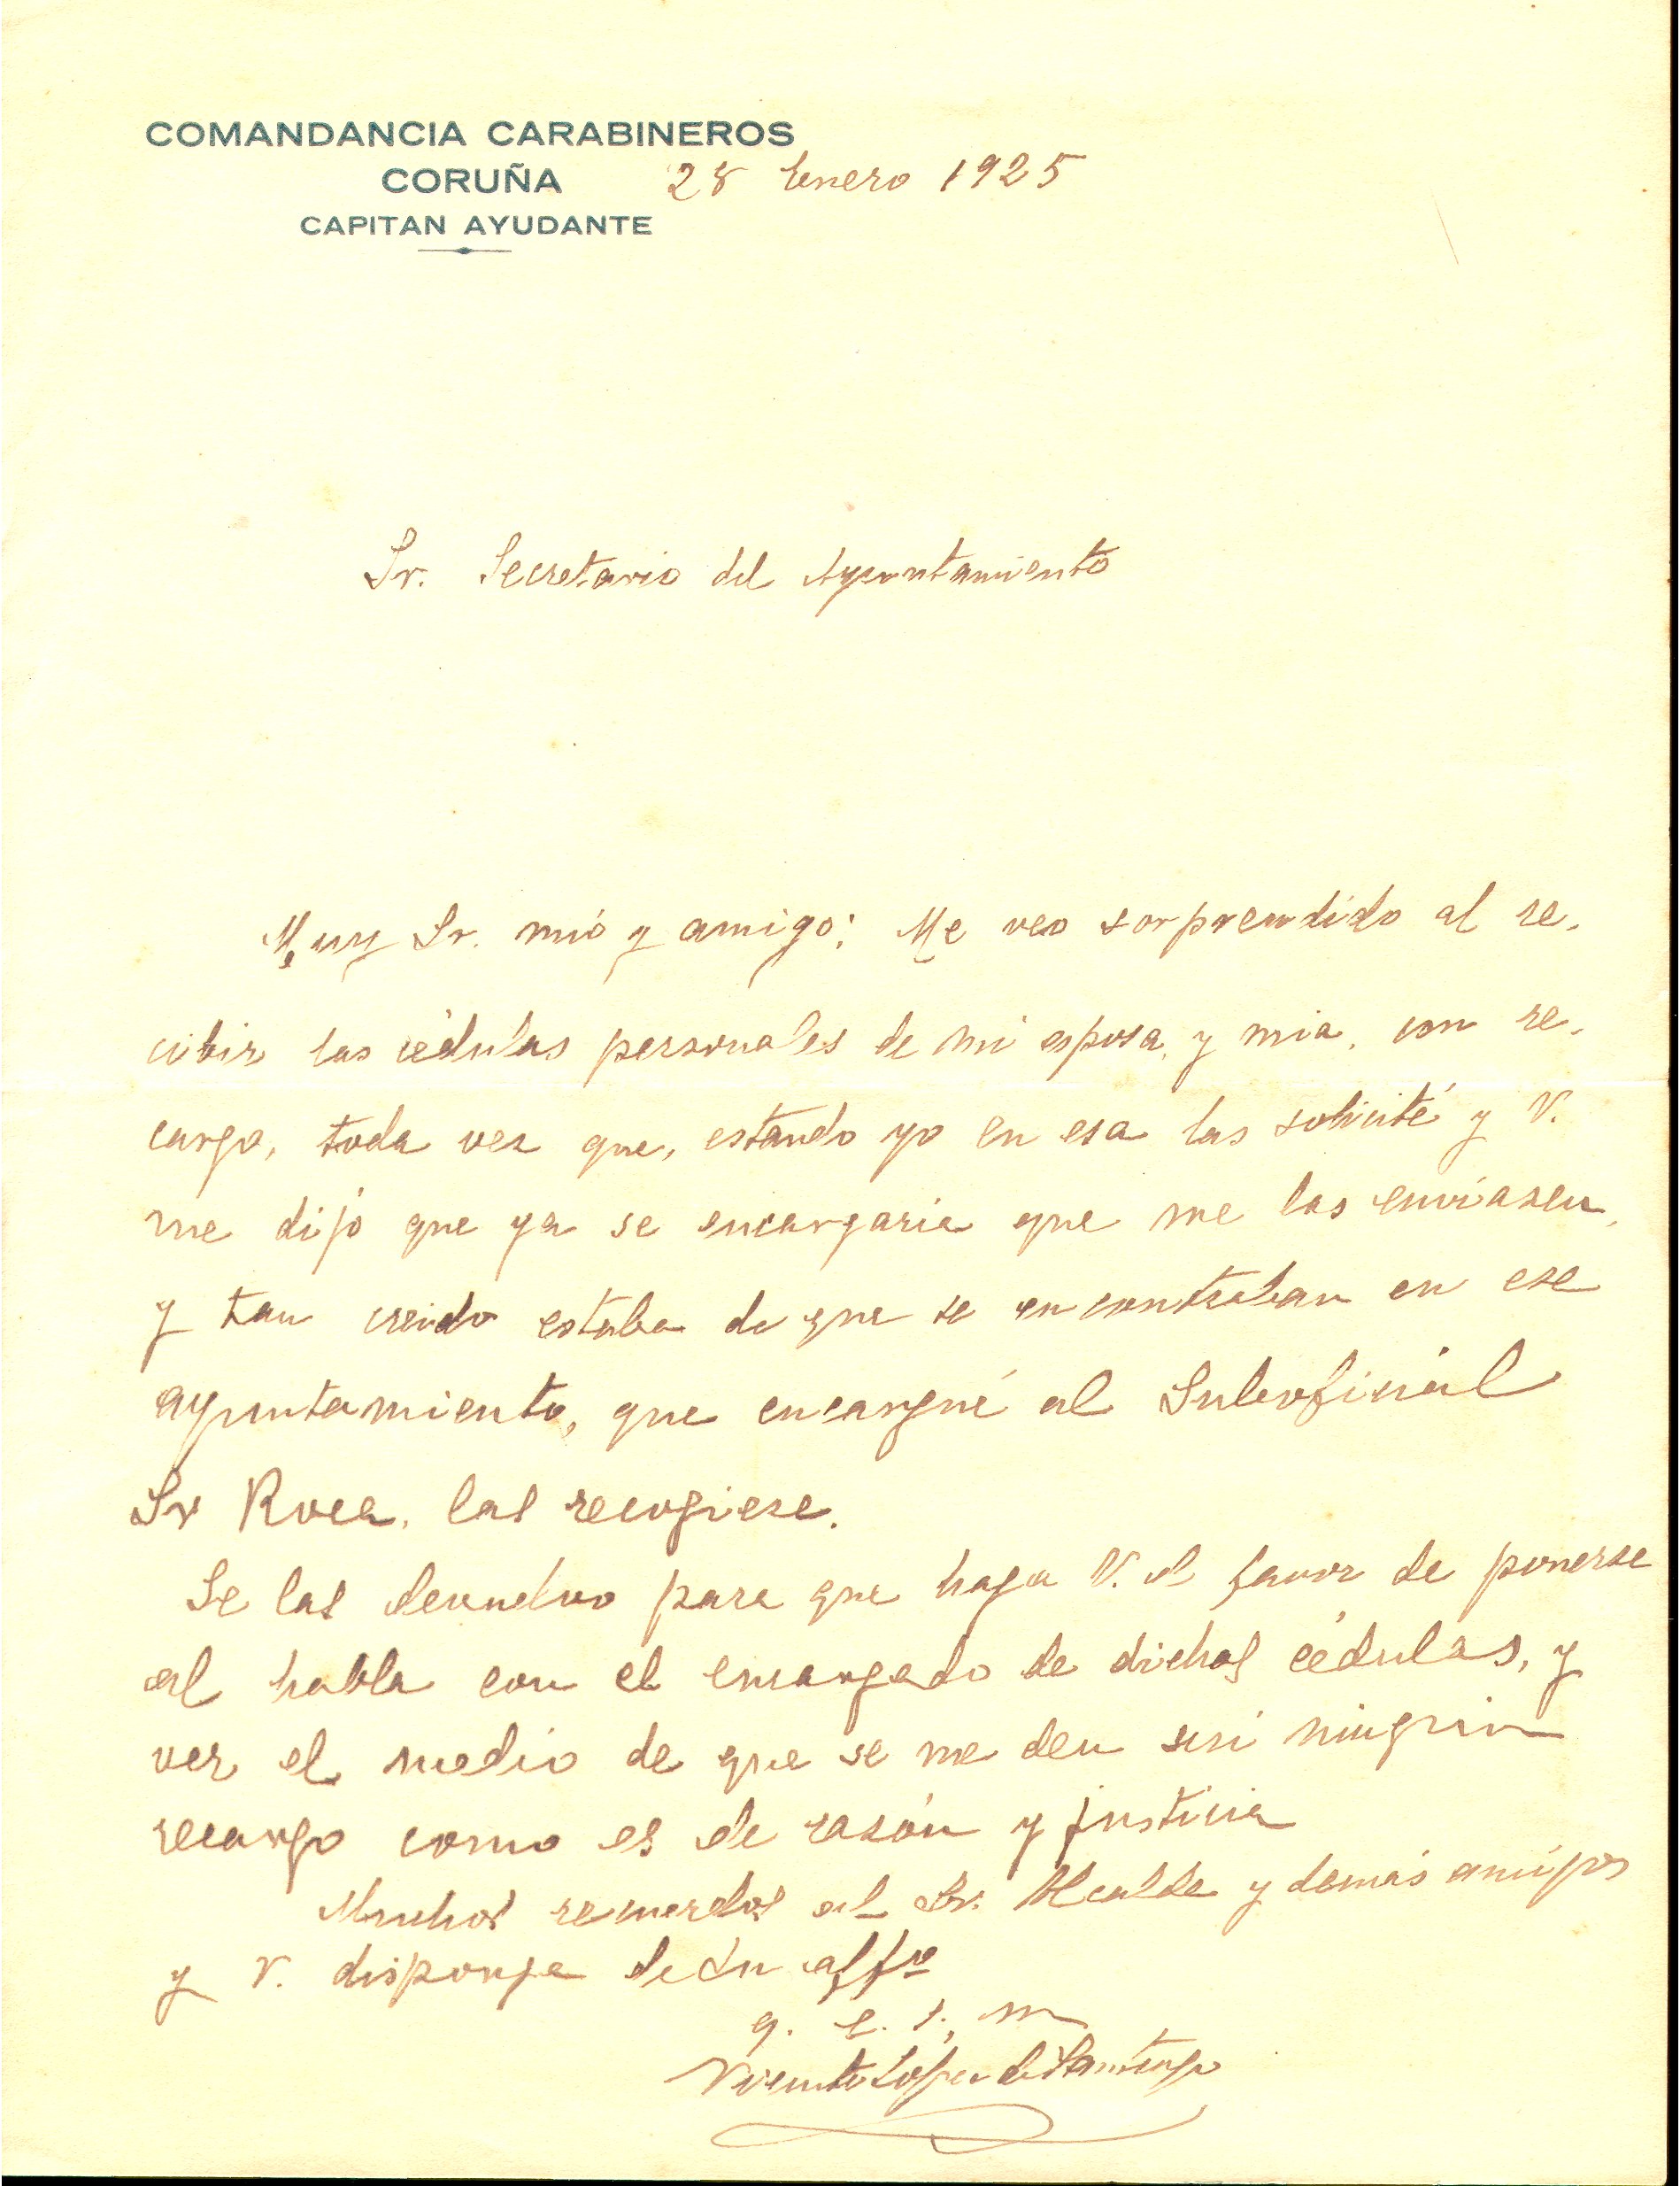 COMANDANCIA CARABINEROS
CORUÑA
28 Enero 1925
CAPITAN AYUDANTE
Sr. Secretario del Ayuntamiento
Muy Sr. mio y amigo: Me veo sorprendido al re-
cibir las cédulas personales de mi esposa, y mia, con re-
cargo, toda vez que, estando yo en esa las solicité y V.
me dijo que ya se encargaria que me las enviasen,
y tan creido estaba de que se encontraban en ese
ayuntamiento, que encargué al Suboficial
Sr Roca, las recogiese.
Se las devuelvo para que haga V. el favor de ponerse
al habla con el encargado de dichas cédulas, y
ver el medio de que se me den sin ningun
recargo como es de razón y justicia
Muchos recuerdos al Sr. Alcalde y demás amigos
y V. disponga de su affº
q. e. s. m
Vicente López de Santiago